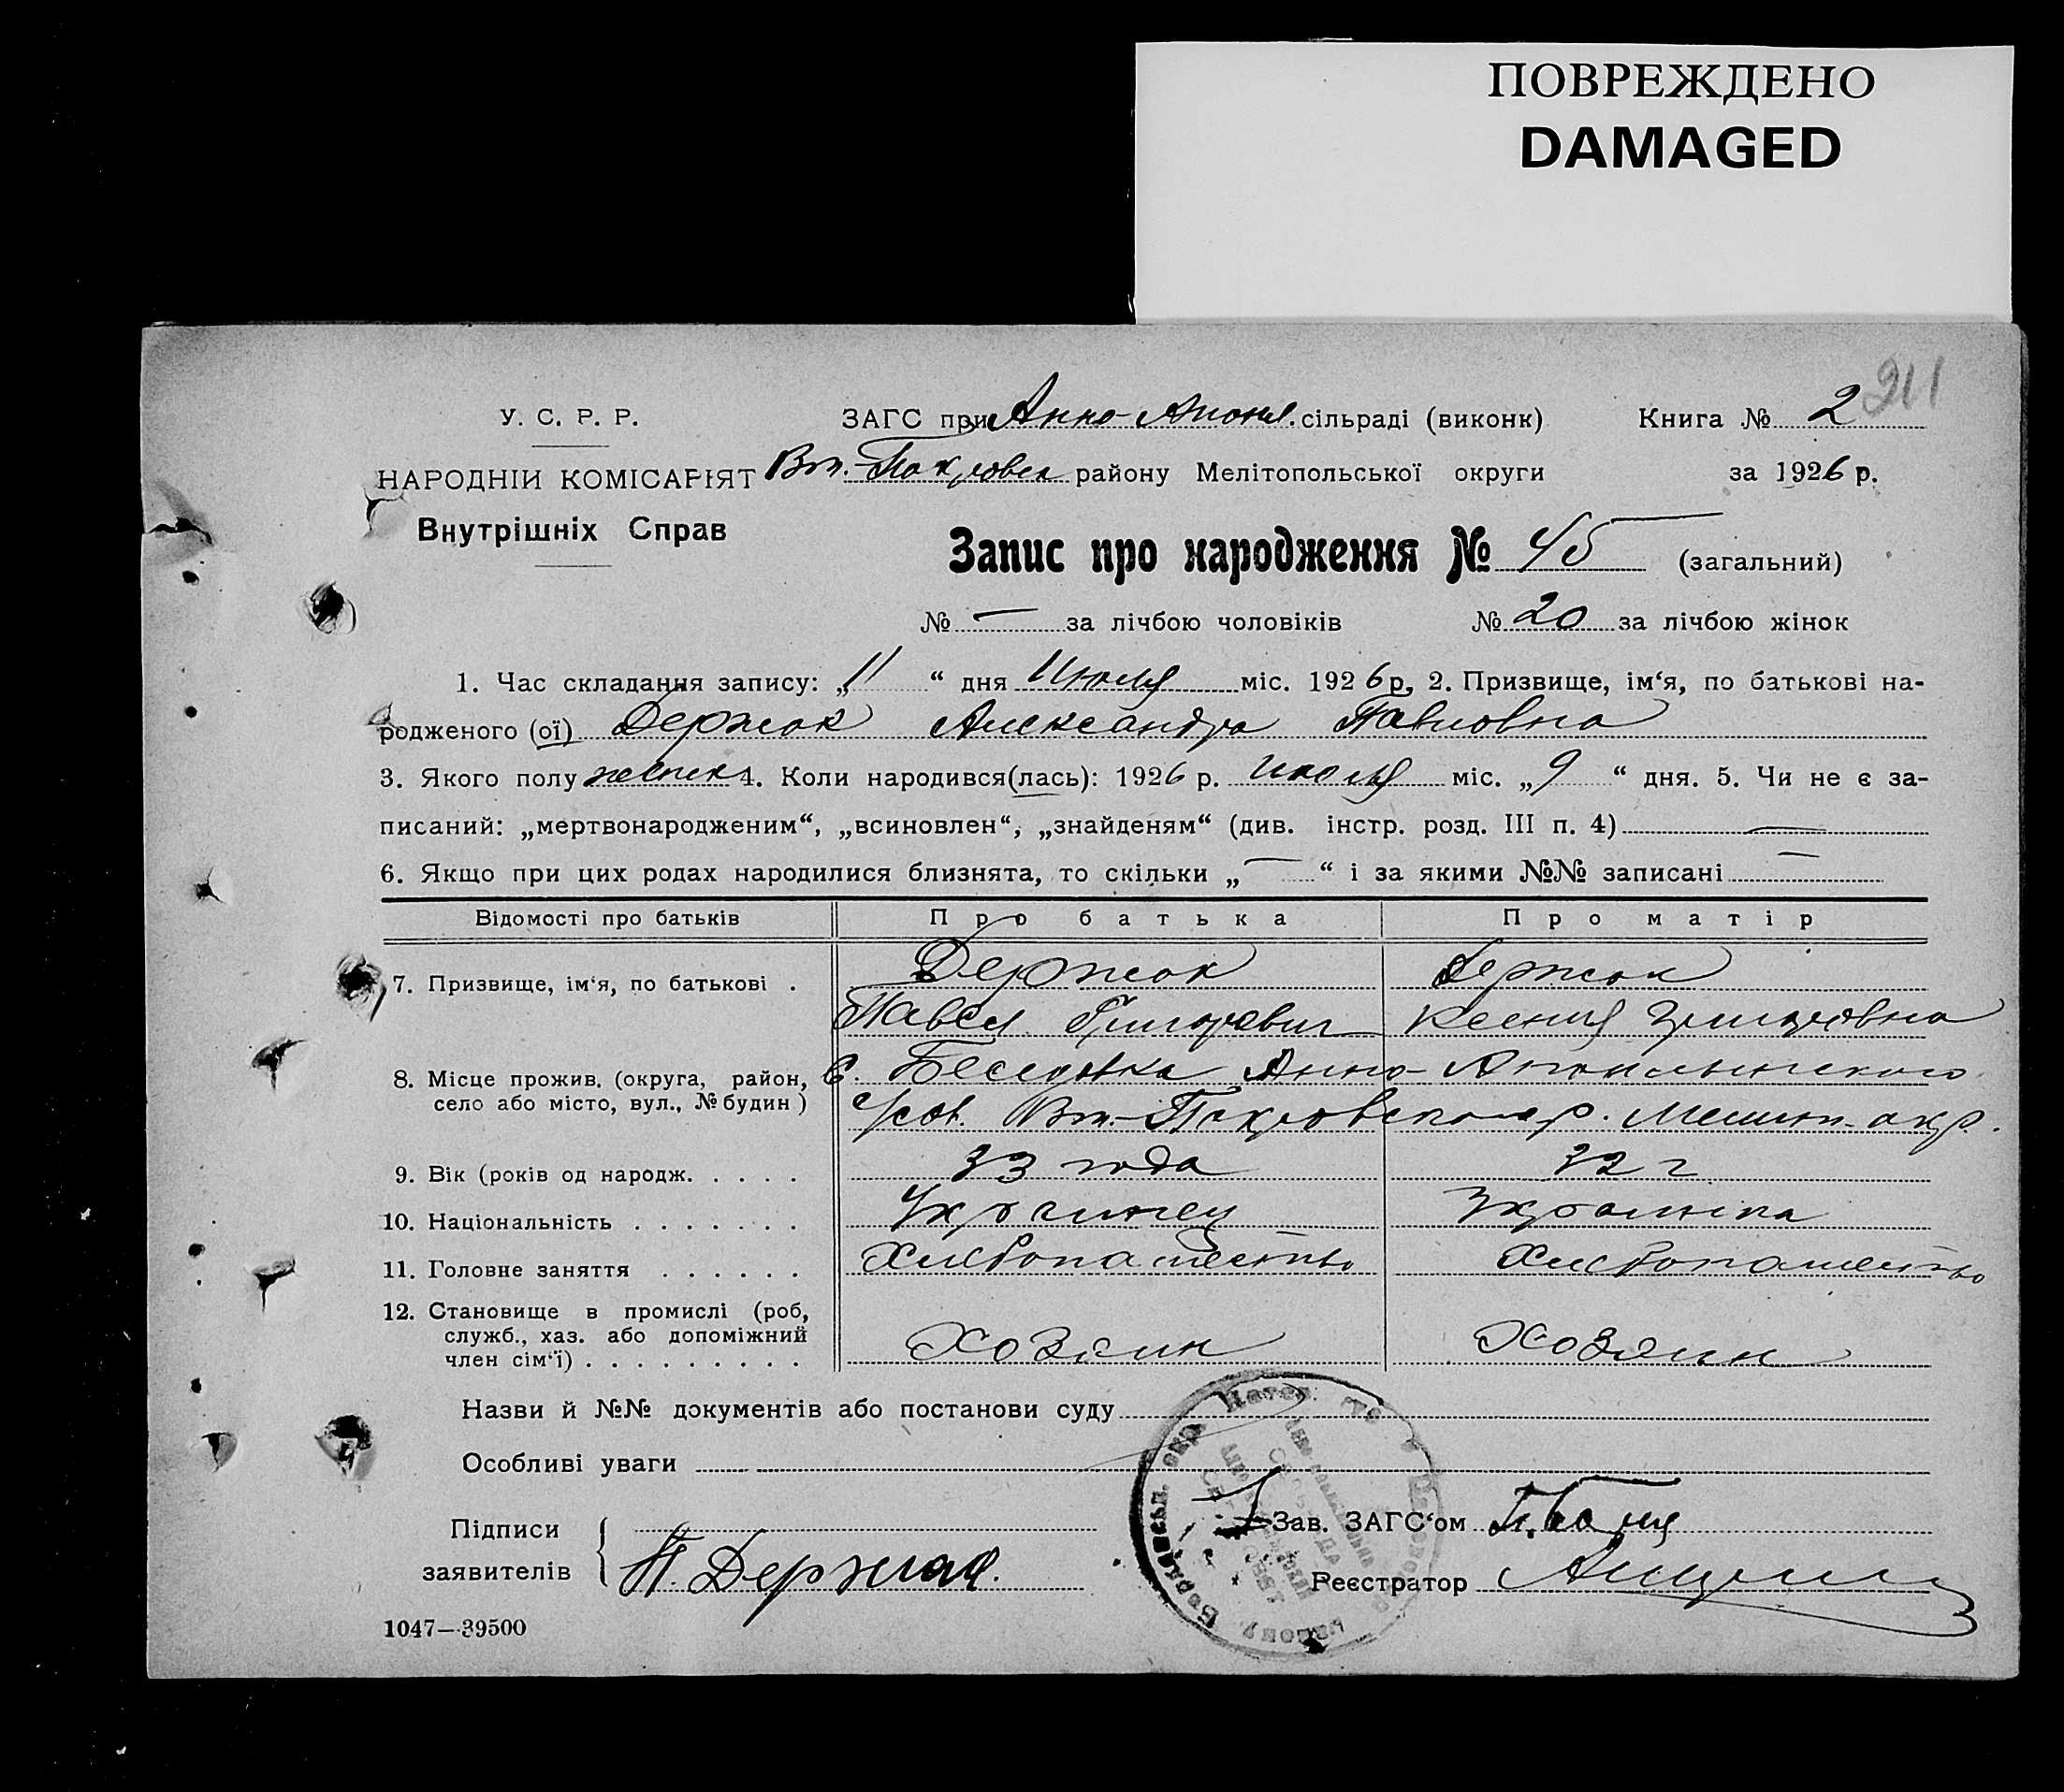 ПОВРЕЖДЕНО
DAMAGED
211
У. С. Р. Р. ЗАГС при Анно-Апонл. сільраді (виконк) Книга № 2
НАРОДНІЙ КОМІСАРІЯТ Вт.-Покровск району Мелітопольської округи за 1926 р.
Внутрішніх Справ
Запис про народження № 45 (загальний)
№ — за лічбою чоловіків № 20 за лічбою жінок
1. Час складання запису: „11“ дня Июля міс. 1926 р, 2. Призвище, ім‘я, по батькові на-
родженого (ої) Держак Александра Павловна
3. Якого полу женск 4. Коли народився(лась): 1926 р. июля міс. „9“ дня. 5. Чи не є за-
писаний: „мертвонародженим“, „всиновлен“, „знайденям“ (див. інстр. розд. III п. 4) —
6. Якщо при цих родах народилися близнята, то скільки „—“ і за якими №№ записані —
Відомості про батьків Про батька Про матір
7. Призвище, ім‘я, по батькові . Держак Держак
Павел Григоревич Ксения Григоровна
8. Місце прожив. (округа, район, С. Беседовка Анно-Апонлынского
село або місто, вул., № будин) с/сов. Вт.-Покровского р. Мелитоп. окр.
9. Вік (років од народж. . . . . 33 года 32 г
10. Національність . . . . . . . Украинец Украинка
11. Головне заняття . . . . . . Хлебопашество Хлебопашество
12. Становище в промислі (роб,
служб., хаз. або допоміжний
член сім‘ї) . . . . . . . . . Хозяин Хозяин
Назви й №№ документів або постанови суду
Особливі уваги
Підписи
заявителів П. Держак.
Зав. ЗАГС‘ом
Реєстратор
1047—39500